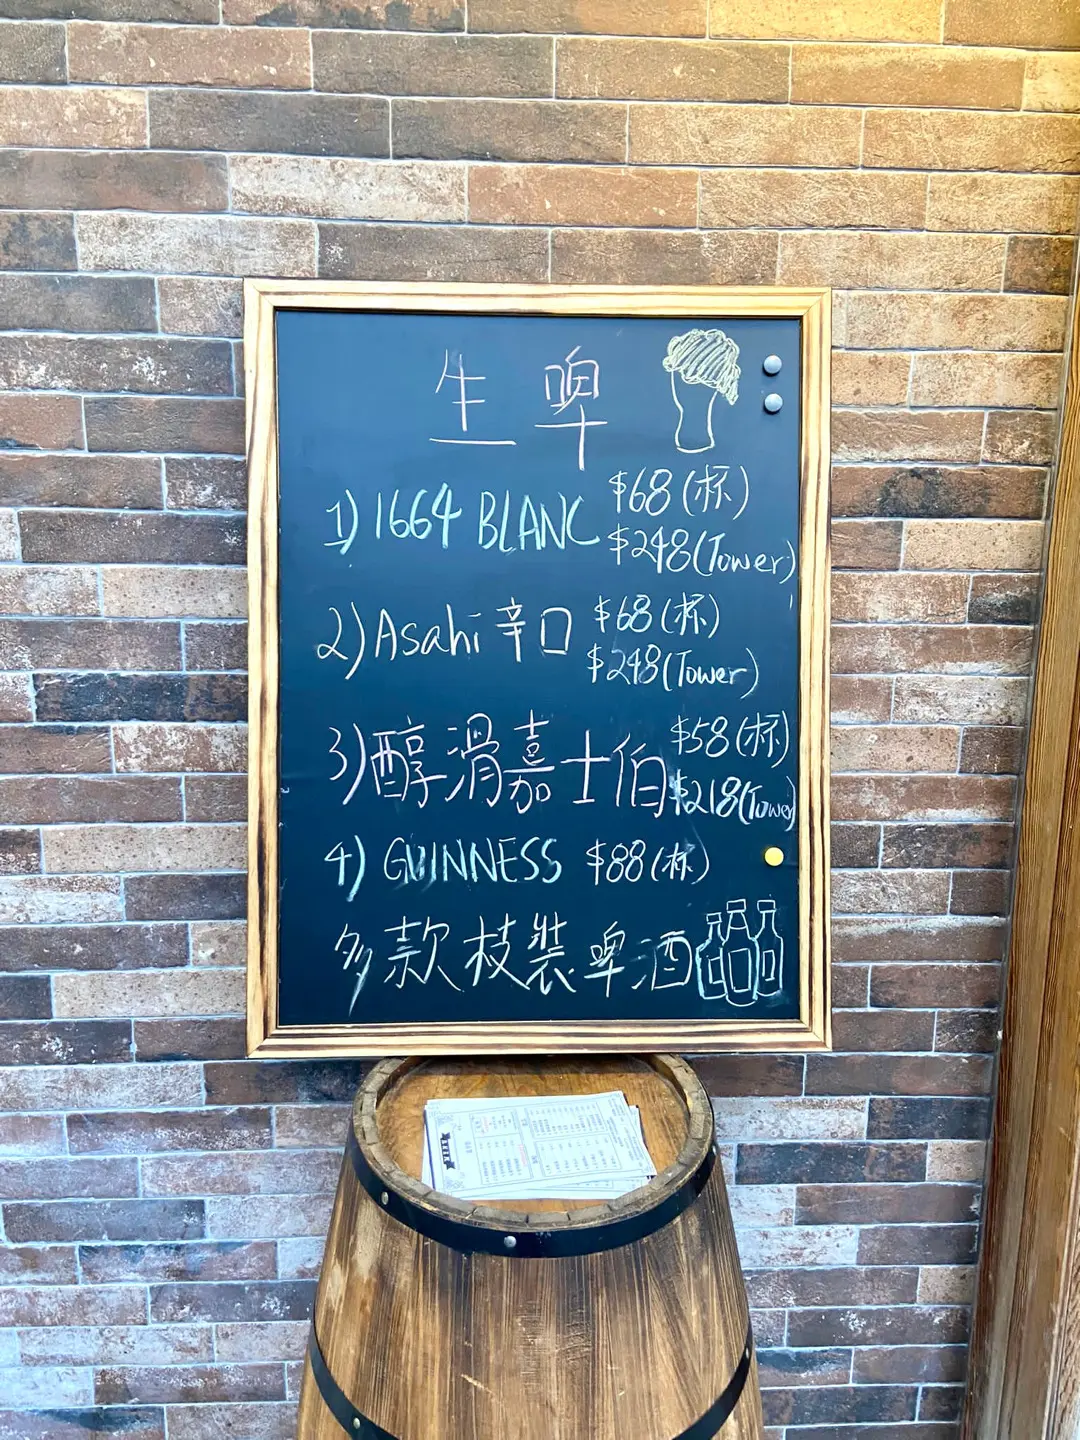 生啤
1) 1664 BLANC $68(杯)
$248(Tower)
2) Asahi 辛口 $68(杯)
$248(Tower)
3) 醇滑嘉士伯 $58(杯)
$218(Tower)
4) GUINNESS $88(杯)
多款枝裝啤酒